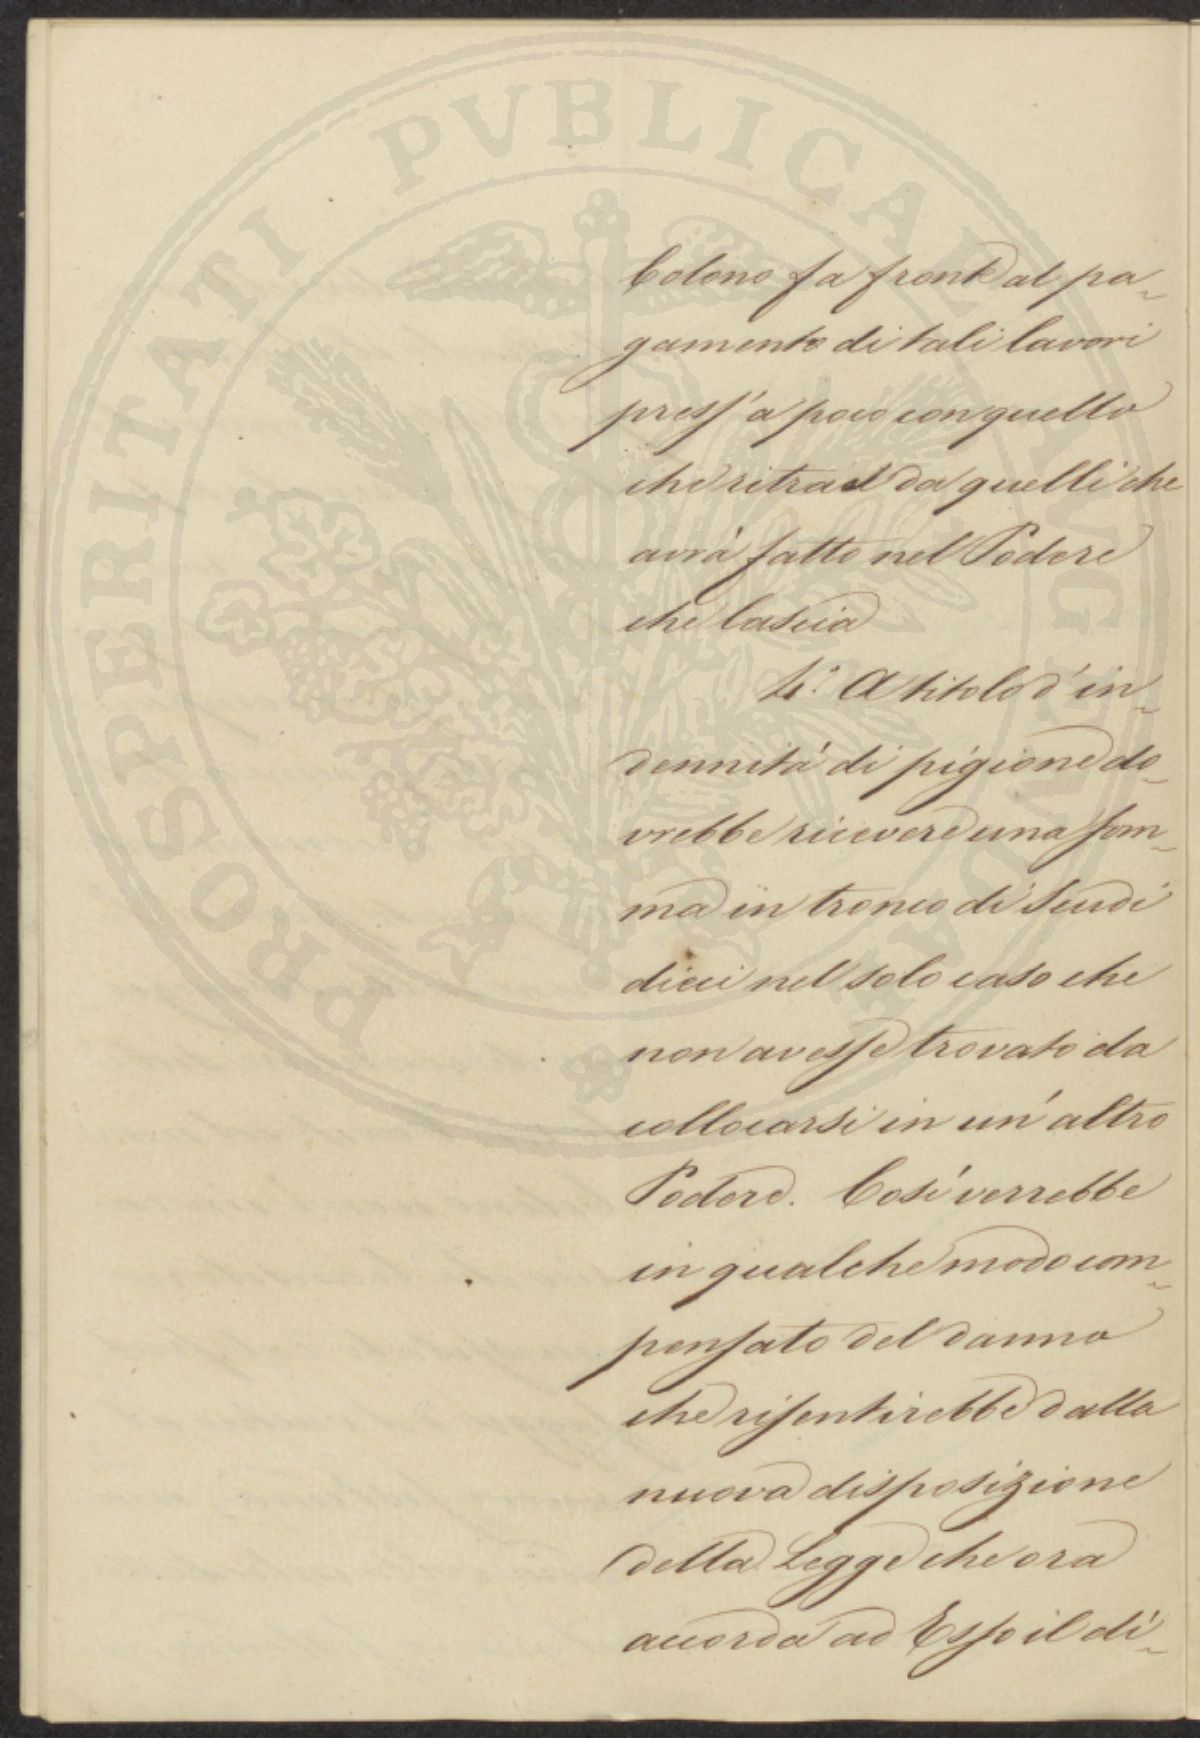 PROSPERITATI PVBLICAE AVGENDAE
Colono fa fronte al pa-
gamento di tali lavori
press'a poco con quello
che ritrae da quelli che
avrà fatto nel Podere
che lascia
4.° A titolo d'in-
dennità di pigione do-
vrebbe ricevere una som-
ma in tronco di Scudi
dieci nel solo caso che
non avesse trovato da
collocarsi in un'altro
Podere. Così verrebbe
in qualche modo com-
pensato del danno
che risentirebbe dalla
nuova disposizione
della Legge che ora
accorda ad Esso il di-